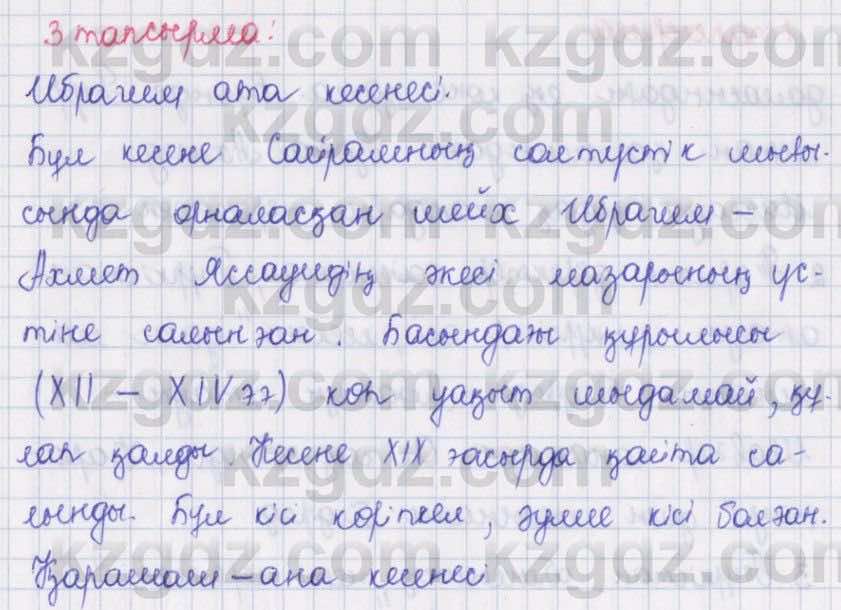 3 тапсырма:
Ибрагим ата кесенесі.
Бұл кесене Сайрамның солтүстік шығы-
сында орналасқан шейх Ибрагим –
Ахмет Яссауидің әкесі мазарының үс-
тіне салынған. Басындағы құрылысы
(XII – XIV ғғ) көп уақыт шыдамай, құ-
лап қалды. Кесене XIX ғасырда қайта са-
лынды. Бұл кісі көріпкел, әулие кісі болған.
Қарашаш – ана кесенесі
kzgdz.com